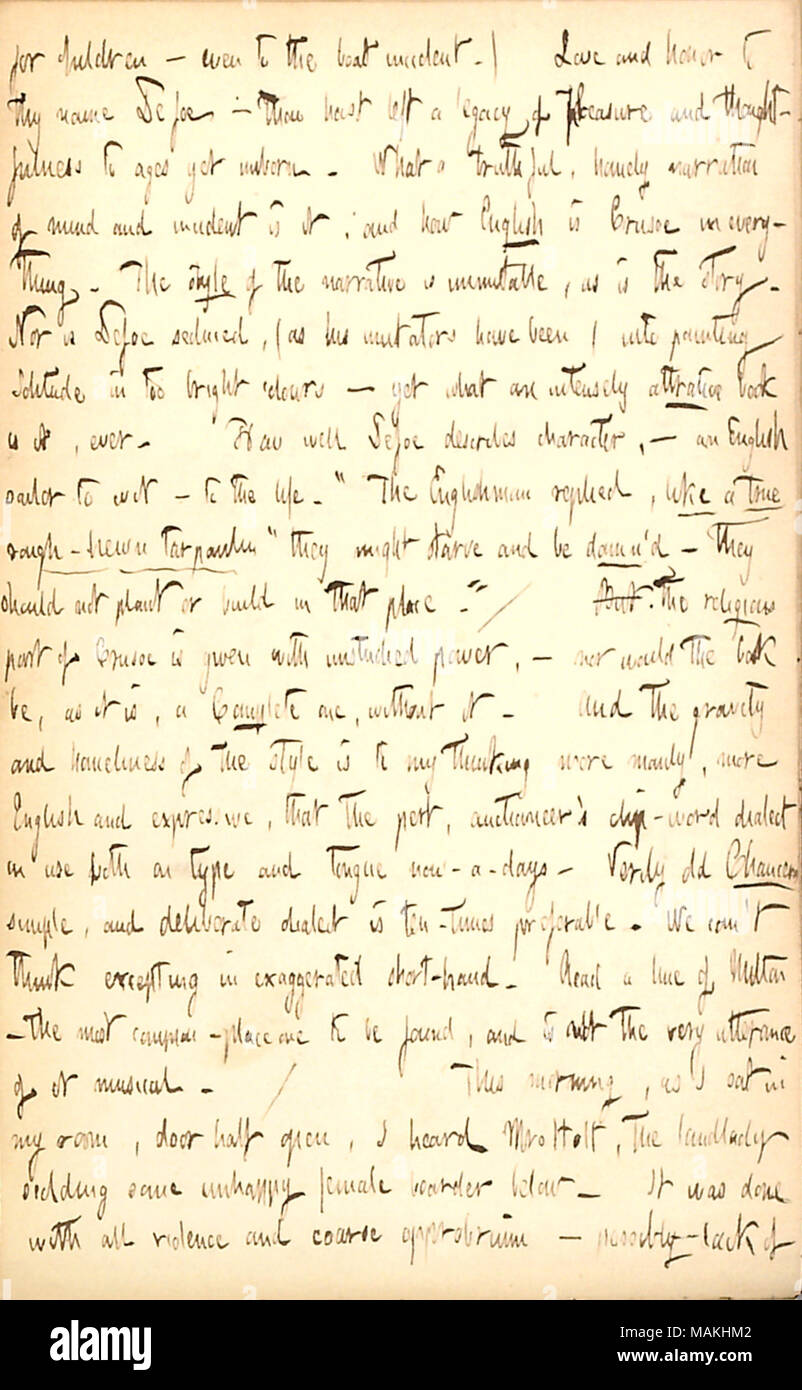 for children — even to the boat incident.) Love and honor to
thy name DeFoe — thou hast left a legacy of pleasure and thought-
fulness to ages yet unborn. What a truthful, homely narration
of mind and incident is it; and how English is Crusoe in every-
thing. The style of the narrative is inimitable, as is the story.
Nor is DeFoe seduced, (as his imitators have been) into painting
Solitude in too bright colours — yet what an intensely attrative book
is it, ever. How well DeFoe describes character, — an English
sailor to wit — to the life. "The Englishman replied, like a true
rough-hewn tarpaulin "they might starve and be damn'd — they
should not plant or build in that place." / But The religious
part of Crusoe is given with unstudied power, — nor would the book
be, as it is, a Complete one, without it. And the gravity
and homeliness of the style is to my thinking more manly, more
English and expressive, that the pert, auctioneer's clip-word dialect
in use both on type and tongue now-a-days. Verily old Chaucers
simple, and deliberate dialect is ten-times preferable. We can't
think excepting in exaggerated short-hand. Read a line of Milton
— the most common-place one to be found, and is not the very utterance
of it musical. / This morning, as I sat in
my room, door half open, I heard Mrs Holt, the landlady
scolding some unhappy female boarder below. It was done
with all violence and coarse opprobrium — possibly lack of
a alamy
a
alamy
Image ID: MAKHM2
www.alamy.com